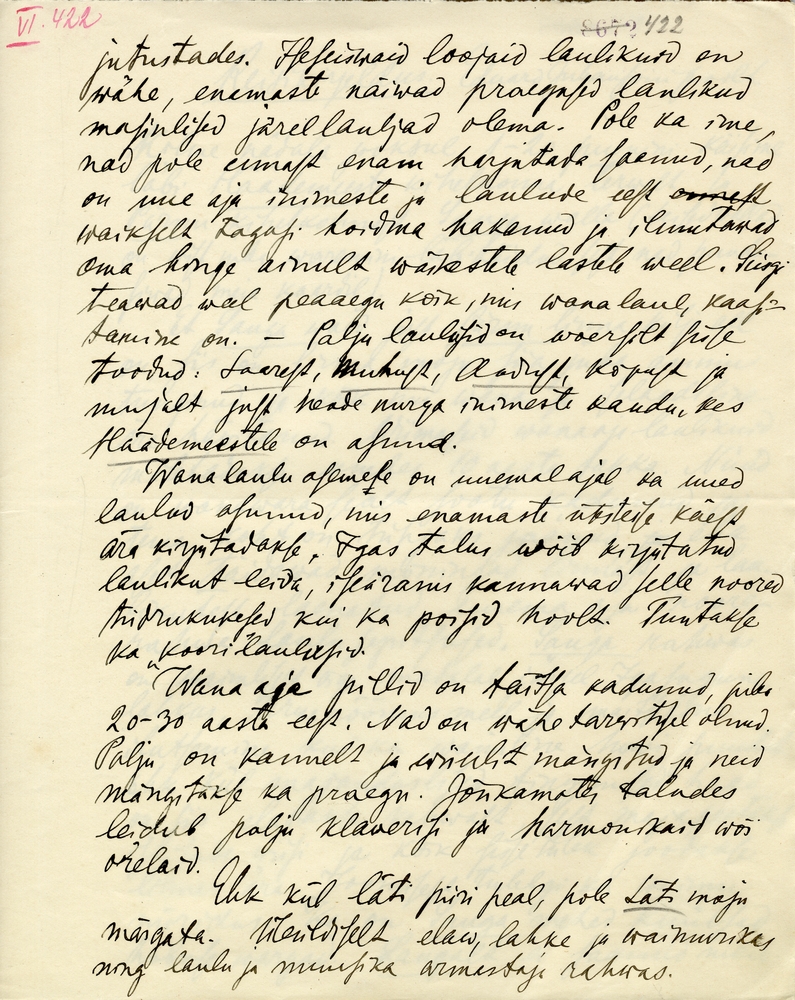 VI. 422
8672 422
jutustades. Iseseiswaid loojaid laulikuid on
wähe, enamaste näiwad praegused laulikud
masinlised järellauljad olema. Pole ka ime,
nad pole ennast enam harjutada saanud, nad
on uue aja inimeste ja laulude eest ennast
waikselt tagasi hoidma hakanud ja ilmutawad
oma hinge ainult wäikestele lastele weel. Siisgi
teawad weel peaaegu kõik, mis wana laul, kaasi-
tamine on. – Palju laulusid on wõersilt sisse
toodud: Saarest, Muhust, Audrust, Kõpust ja
mujalt just nende nurga inimeste kaudu, kes
Häädemeestele on asunud.
Wana laulu asemele on uuemal ajal ka uued
laulud asunud, mis enamaste üksteise käest
ära kirjutadakse. Igas talus wõib kirjutatud
laulikut leida, iseäranis kannawad selle noored
tüdrukukesed kui ka poisid hoolt. Tuntakse
ka „koori"laulusid.
Wana aja pillid on täitsa kadunud, juba
20-30 aasta eest. Nad on wähe tarwitusel olnud.
Palju on kannelt ja wiiulit mängitud ja neid
mängitakse ka praegu. Jõukamates taludes
leidub palju klaverisi ja harmonikaid wõi
orelaid.
Ehk küll läti piiri peal, pole Läti mõju
märgata. Üleüldiselt elaw, lahke ja waimurikas
ning laulu ja muusika armastaja rahwas.